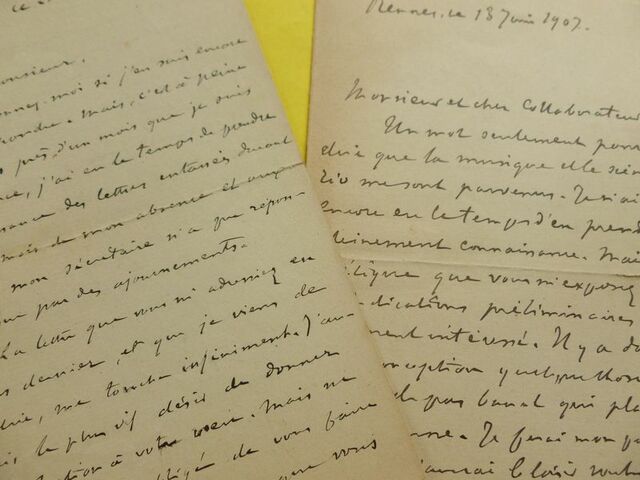 ce
onsieur,
nnez-moi si j'en suis encore
ondre. Mais, c'est à peine
près d'un mois que je suis
ce, j'ai eu le temps de prendre
sance des lettres entassées durant
mois de mon absence et auxqu
mon secrétaire n'a que répon-
que par des ajournements.
La lettre que vous m'adressiez en
s dernier, et que je viens de
me touche infiniment. J'au-
le plus vif désir de donner
ction à votre
Mais ne
obligé de vous faire
que vous
Rennes, ce 13 Juin 1907.
Monsieur et cher Collaborateur
Un mot seulement pour
dire que la musique et le scén
rio me sont parvenus. Je n'ai
encore eu le temps d'en prend
pleinement connaissance. Mais
que vous m'exposez
dications préliminaires
ment intéressé. Il y a d
onception quelque chose
de pas banal qui pla
Je ferai mon p
j'aurai le loisir voulu